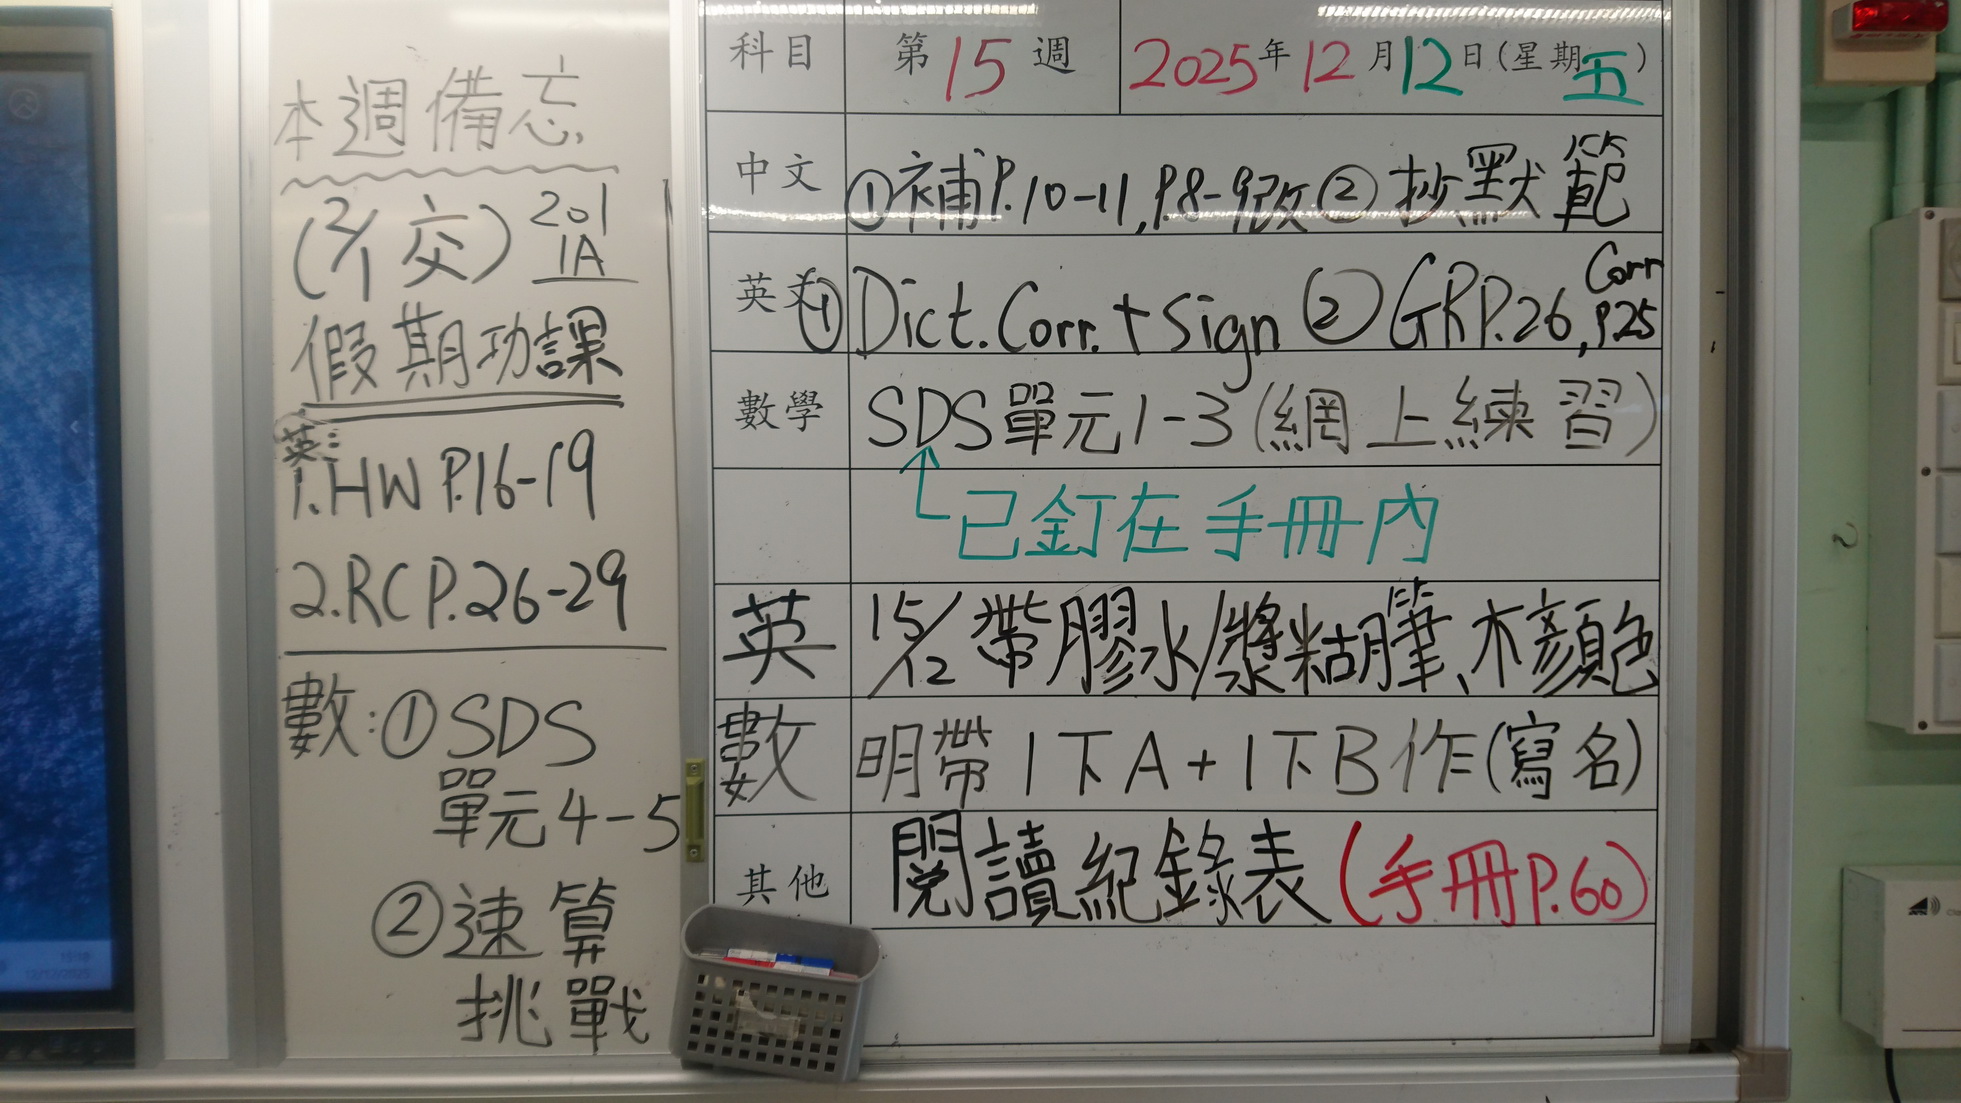 本週備忘
(2/1交) 201
1A
假期功課
英:
1.HW P.16-19
2.RC P.26-29
數:①SDS
單元4-5
②速算
挑戰
科目 第15週 2025年12月12日(星期五)
中文 ①補P.10-11,P8-9改②抄默範
英文 ①Dict.Corr.+sign ②GRP.26, Corr P25
數學 SDS單元1-3(網上練習)
已釘在手冊內
英 15/12帶膠水/漿糊筆、木顏色
數 明帶1下A+1下B作(寫名)
其他 閱讀紀錄表(手冊P.60)